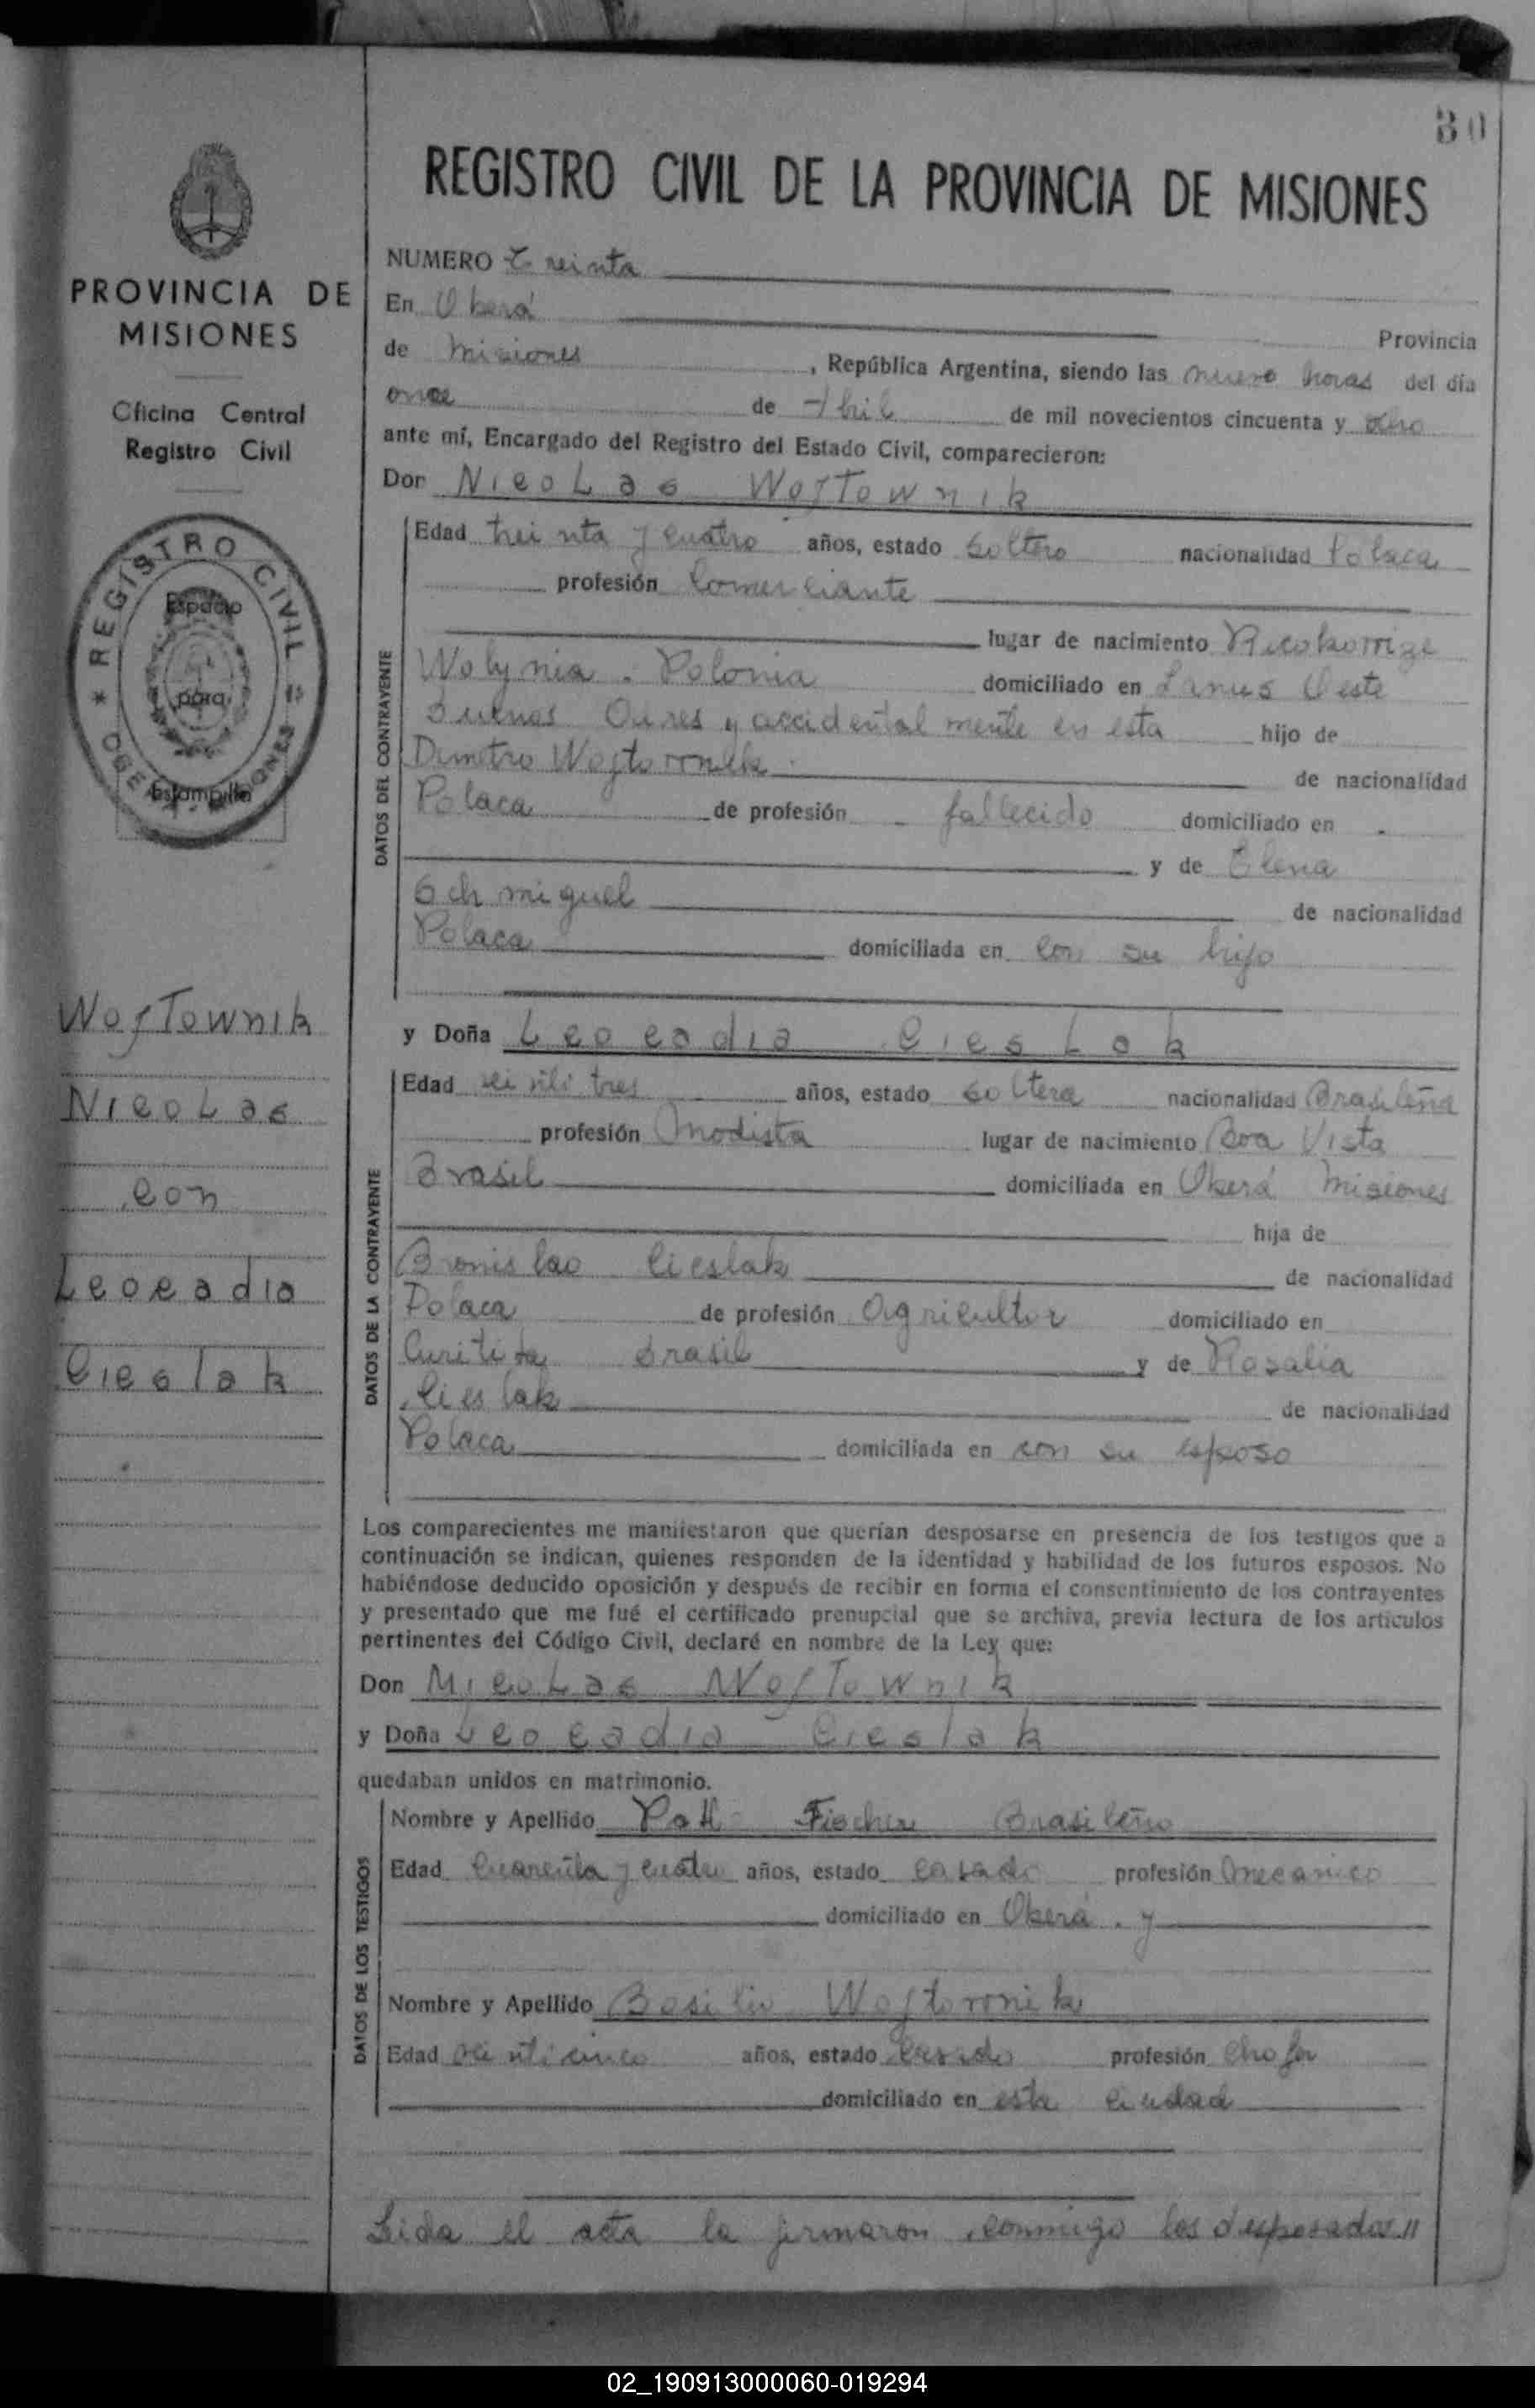 30
REGISTRO CIVIL DE LA PROVINCIA DE MISIONES
PROVINCIA DE
MISIONES
Oficina Central
Registro Civil
REGISTRO CIVIL
Espacio
para
Estampilla
WojTownik
Nicolas
con
Leocadia
Cieslak
NUMERO Treinta
En Oberá Provincia
de Misiones, República Argentina, siendo las nueve horas del día
once de Abril de mil novecientos cincuenta y ocho
ante mí, Encargado del Registro del Estado Civil, comparecieron:
Don Nicolas WojTownik
DATOS DEL CONTRAYENTE
Edad treinta y cuatro años, estado soltero nacionalidad Polaca
profesión Comerciante
lugar de nacimiento
Wolynia. Polonia domiciliado en Lanus Oeste
Buenos Aires y accidentalmente en esta hijo de
Dimetro Wojtownik de nacionalidad
Polaca de profesión - fallecido domiciliado en -
y de Elena
Schmiguel de nacionalidad
Polaca domiciliada en con su hijo
y Doña Leocadia Cieslak
DATOS DE LA CONTRAYENTE
Edad veintitres años, estado soltera nacionalidad Brasileña
profesión Modista lugar de nacimiento Boa Vista
Brasil domiciliada en Oberá Misiones
hija de
Bronislao Cieslak de nacionalidad
Polaca de profesión Agricultor domiciliado en
Curitiba Brasil y de Rosalia
Cieslak de nacionalidad
Polaca domiciliada en con su esposo
Los comparecientes me manifestaron que querían desposarse en presencia de los testigos que a
continuación se indican, quienes responden de la identidad y habilidad de los futuros esposos. No
habiéndose deducido oposición y después de recibir en forma el consentimiento de los contrayentes
y presentado que me fué el certificado prenupcial que se archiva, previa lectura de los artículos
pertinentes del Código Civil, declaré en nombre de la Ley que:
Don Nicolas WojTownik
y Doña Leocadia Cieslak
quedaban unidos en matrimonio.
DATOS DE LOS TESTIGOS
Nombre y Apellido Fischer Brasileño
Edad Cuarenta y cuatro años, estado casado profesión Mecanico
domiciliado en Oberá. y
Nombre y Apellido Basilio Wojtownik
Edad veinticinco años, estado casado profesión Chofer
domiciliado en esta ciudad
Leida el acta la firmaron conmigo los desposados"
02_190913000060-019294